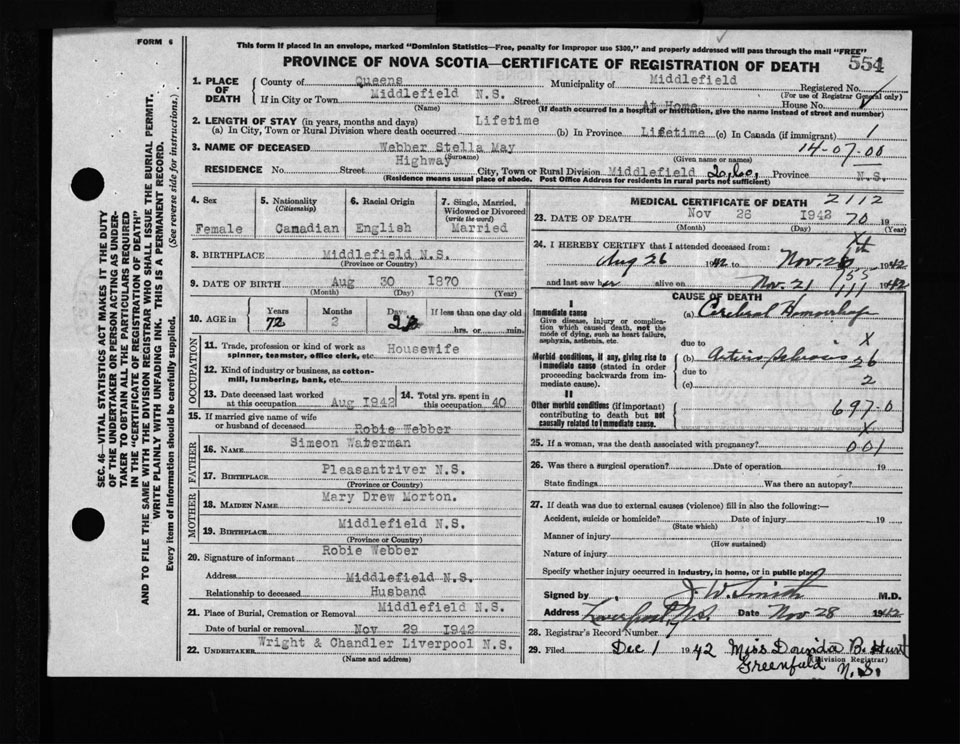 FORM 6
This form if placed in an envelope, marked "Dominion Statistics—Free, penalty for improper use $300," and properly addressed will pass through the mail "FREE"
PROVINCE OF NOVA SCOTIA—CERTIFICATE OF REGISTRATION OF DEATH
554
SEC. 46—VITAL STATISTICS ACT MAKES IT THE DUTY
OF THE UNDERTAKER OR PERSON ACTING AS UNDER-
TAKER TO OBTAIN ALL THE PARTICULARS REQUIRED
IN THE "CERTIFICATE OF REGISTRATION OF DEATH"
AND TO FILE THE SAME WITH THE DIVISION REGISTRAR WHO SHALL ISSUE THE BURIAL PERMIT.
WRITE PLAINLY WITH UNFADING INK. THIS IS A PERMANENT RECORD.
Every item of information should be carefully supplied. (See reverse side for instructions.)
1. PLACE OF DEATH
County of Queens Municipality of Middlefield Registered No.
(For use of Registrar General only)
If in City or Town Middlefield N.S. Street At Home House No.
(Name) (If death occurred in a hospital or institution, give the name instead of street and number)
2. LENGTH OF STAY (in years, months and days)
(a) In City, Town or Rural Division where death occurred Lifetime (b) In Province Lifetime (c) In Canada (if immigrant) 1
3. NAME OF DECEASED Webber Stella May 14-07-00
(Surname) (Given name or names)
RESIDENCE No. Highway Street City, Town or Rural Division Middlefield Province N.S.
(Residence means usual place of abode. Post Office Address for residents in rural parts not sufficient)
4. Sex
Female
5. Nationality
(Citizenship)
Canadian
6. Racial Origin
English
7. Single, Married, Widowed or Divorced
(write the word)
Married
8. BIRTHPLACE Middlefield N.S.
(Province or Country)
9. DATE OF BIRTH Aug 30 1870
(Month) (Day) (Year)
10. AGE in
Years Months Days If less than one day old
72 2 hrs. or min.
OCCUPATION
11. Trade, profession or kind of work as
spinner, teamster, office clerk, etc. Housewife
12. Kind of industry or business, as cotton-
mill, lumbering, bank, etc.
13. Date deceased last worked
at this occupation Aug 1942
14. Total yrs. spent in
this occupation 40
15. If married give name of wife
or husband of deceased Robie Webber
FATHER
16. NAME Simeon Waterman
17. BIRTHPLACE Pleasantriver N.S.
(Province or Country)
MOTHER
18. MAIDEN NAME Mary Drew Morton.
19. BIRTHPLACE Middlefield N.S.
(Province or Country)
20. Signature of informant Robie Webber
Address Middlefield N.S.
Relationship to deceased Husband
21. Place of Burial, Cremation or Removal Middlefield N.S.
Date of burial or removal Nov 29 1942
22. UNDERTAKER Wright & Chandler Liverpool N.S.
(Name and address)
MEDICAL CERTIFICATE OF DEATH 2112
23. DATE OF DEATH Nov 26 1942 70 19
(Month) (Day) (Year)
24. I HEREBY CERTIFY that I attended deceased from:
Aug 26 1942 to Nov. 1942
and last saw her alive on Nov. 21 1942
155
111
CAUSE OF DEATH
I
Immediate cause
Give disease, injury or complication which caused death, not the mode of dying, such as heart failure, asphyxia, asthenia, etc.
(a) Cerebral Hemorrhage
due to X
Morbid conditions, if any, giving rise to immediate cause (stated in order proceeding backwards from immediate cause).
(b) 26
due to 2
(c)
II
Other morbid conditions (if important) contributing to death but not causally related to immediate cause.
697-0
X
25. If a woman, was the death associated with pregnancy? 001
26. Was there a surgical operation? Date of operation 19
State findings Was there an autopsy?
27. If death was due to external causes (violence) fill in also the following:—
Accident, suicide or homicide? Date of injury 19
(State which)
Manner of injury
(How sustained)
Nature of injury
Specify whether injury occurred in industry, in home, or in public place
Signed by J. W. Smith M.D.
Address Liverpool, N.S. Date Nov 28 1942
28. Registrar's Record Number 7
29. Filed Dec 1 1942 Miss Dorinda B. Hunt
(Division Registrar)
Greenfield N.S.